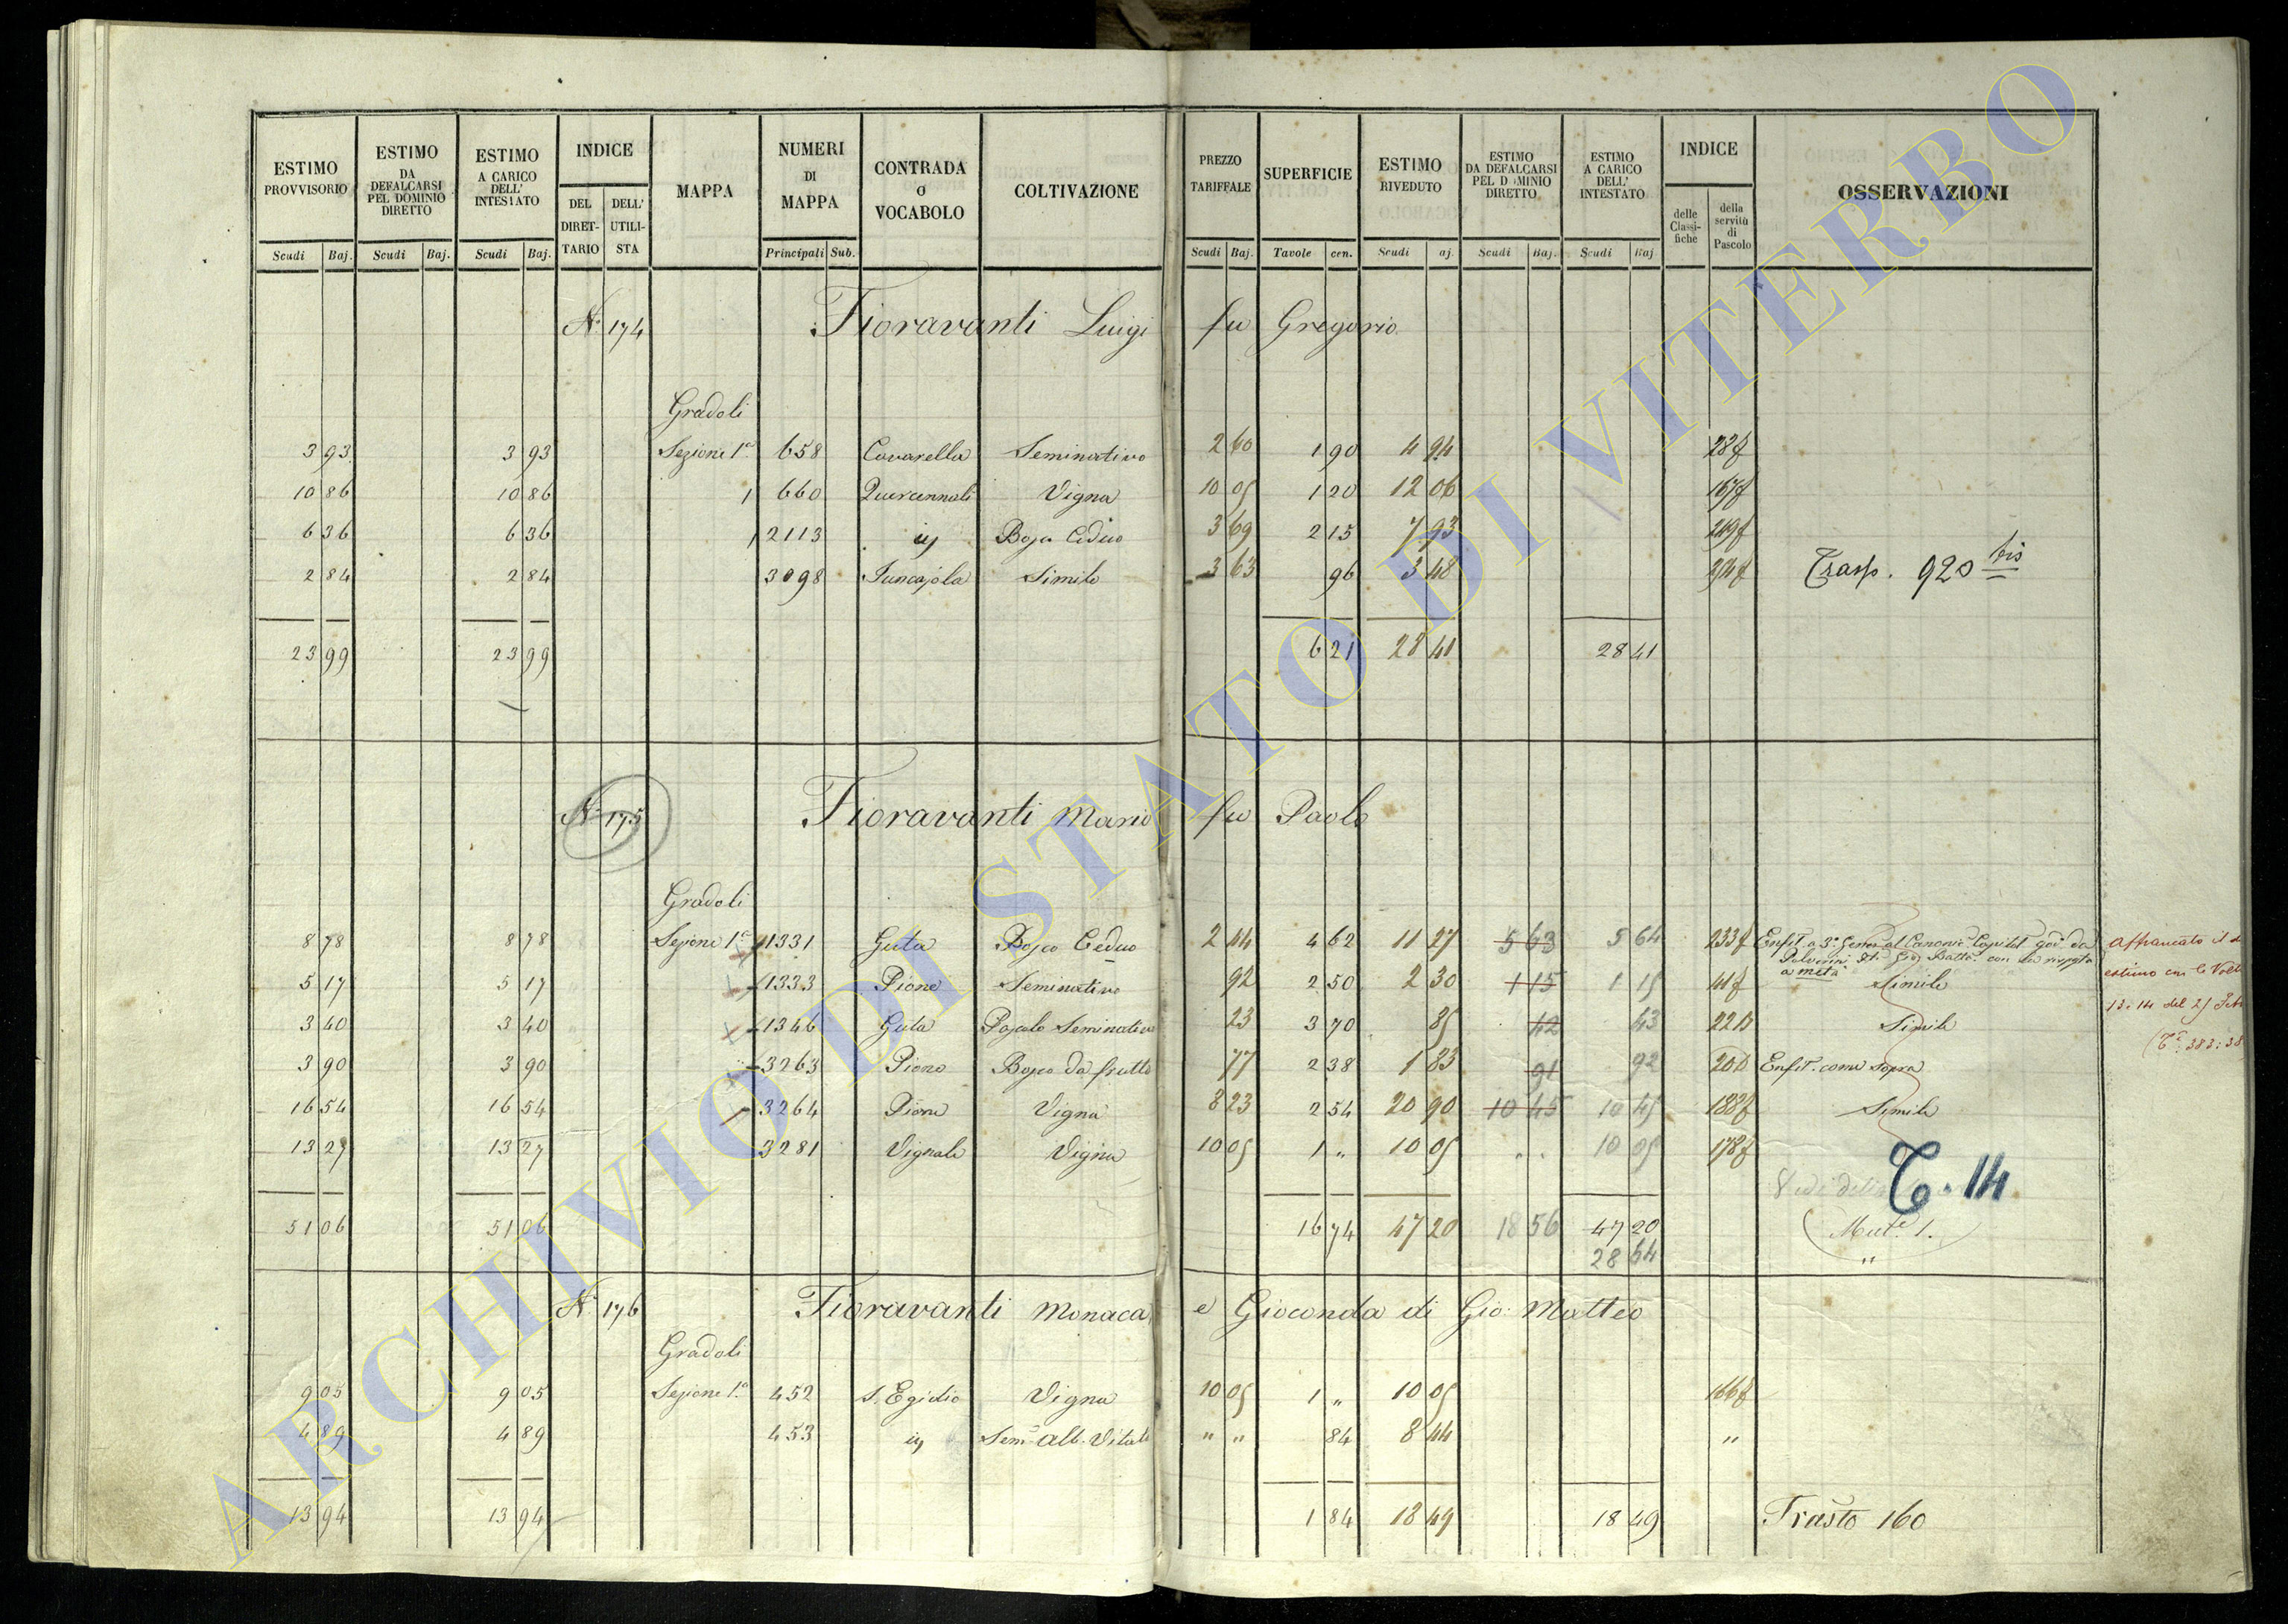 ESTIMO PROVVISORIO | ESTIMO DA DEFALCARSI PEL DOMINIO DIRETTO | ESTIMO A CARICO DELL' INTESTATO | INDICE | MAPPA | NUMERI DI MAPPA | CONTRADA o VOCABOLO | COLTIVAZIONE | PREZZO TARIFFALE | SUPERFICIE | ESTIMO RIVEDUTO | ESTIMO DA DEFALCARSI PEL D MINIO DIRETTO | ESTIMO A CARICO DELL' INTESTATO | INDICE | OSSERVAZIONI
DEL DIRET-TARIO | DELL' UTILI-STA | delle Classi-fiche | della servitù di Pascolo
Scudi | Baj. | Scudi | Baj. | Scudi | Baj. | Principali | Sub. | Scudi | Baj. | Tavole | cen. | Scudi | aj. | Scudi | Baj. | Scudi | Baj
N. 174 Fioravanti Luigi fu Gregorio
Gradoli
3 93 | 3 93 | Sezione 1a | 658 | Cavarella | Seminativo | 2 60 | 1 90 | 4 94 | 28f
10 86 | 10 86 | 1 | 660 | Quercennali | Vigna | 10 05 | 1 20 | 12 06 | 167f
6 36 | 6 36 | 1 | 2113 | | Bosco Ceduo | 3 69 | 2 15 | 7 93 | 249f
2 84 | 2 84 | 3098 | Juncajola | Simile | 3 63 | 96 | 3 48 | Trasp. 920 bis
23 99 | 23 99 | 6 21 | 28 41 | 28 41
N. 175 Fioravanti Mario fu Paolo
Gradoli
8 78 | 8 78 | Sezione 1a | 1331 | Guta | Bosco Ceduo | 2 44 | 4 62 | 11 27 | 5 63 | 5 64 | 233f | Enfit. a 3a Gene al Canonic. Capitol. god. da
Gio. Batta con la risposta
a metà
5 17 | 5 17 | 1333 | Pione | Seminativo | 92 | 2 50 | 2 30 | 1 15 | 1 15 | 41f | Simile
3 40 | 3 40 | 1346 | Guta | Pascolo Seminativo | 23 | 3 70 | 85 | 42 | 43 | 22D | Simile
3 90 | 3 90 | 3263 | Piono | Bosco da frutto | 77 | 2 38 | 1 83 | 91 | 92 | 20D | Enfit. come sopra
16 54 | 16 54 | 3264 | Pione | Vigna | 8 23 | 2 54 | 20 90 | 10 45 | 10 45 | 188f | Simile
13 27 | 13 27 | 3281 | Vignale | Vigna | 10 05 | 1 " | 10 05 | . . | 10 05 | 178f
T. 14
51 06 | 51 06 | 16 74 | 47 20 | 18 56 | 47 20 | (Mut.e 1.)
28 64 | "
affrancato il
estimo con le Volt
13. 14 del 25 Feb
(Ta. 383: 38
N. 176 Fioravanti Monaca e Gioconda di Gio: Matteo
Gradoli
9 05 | 9 05 | Sezione 1a | 452 | S. Egidio | Vigna | 10 05 | 1 " | 10 05 | 166f
4 89 | 4 89 | 453 | | Sem. alb. Vitato | " " | 84 | 8 44 | "
13 94 | 13 94 | 1 84 | 18 49 | 18 49 | Trasto 160
ARCHIVIO DI STATO DI VITERBO